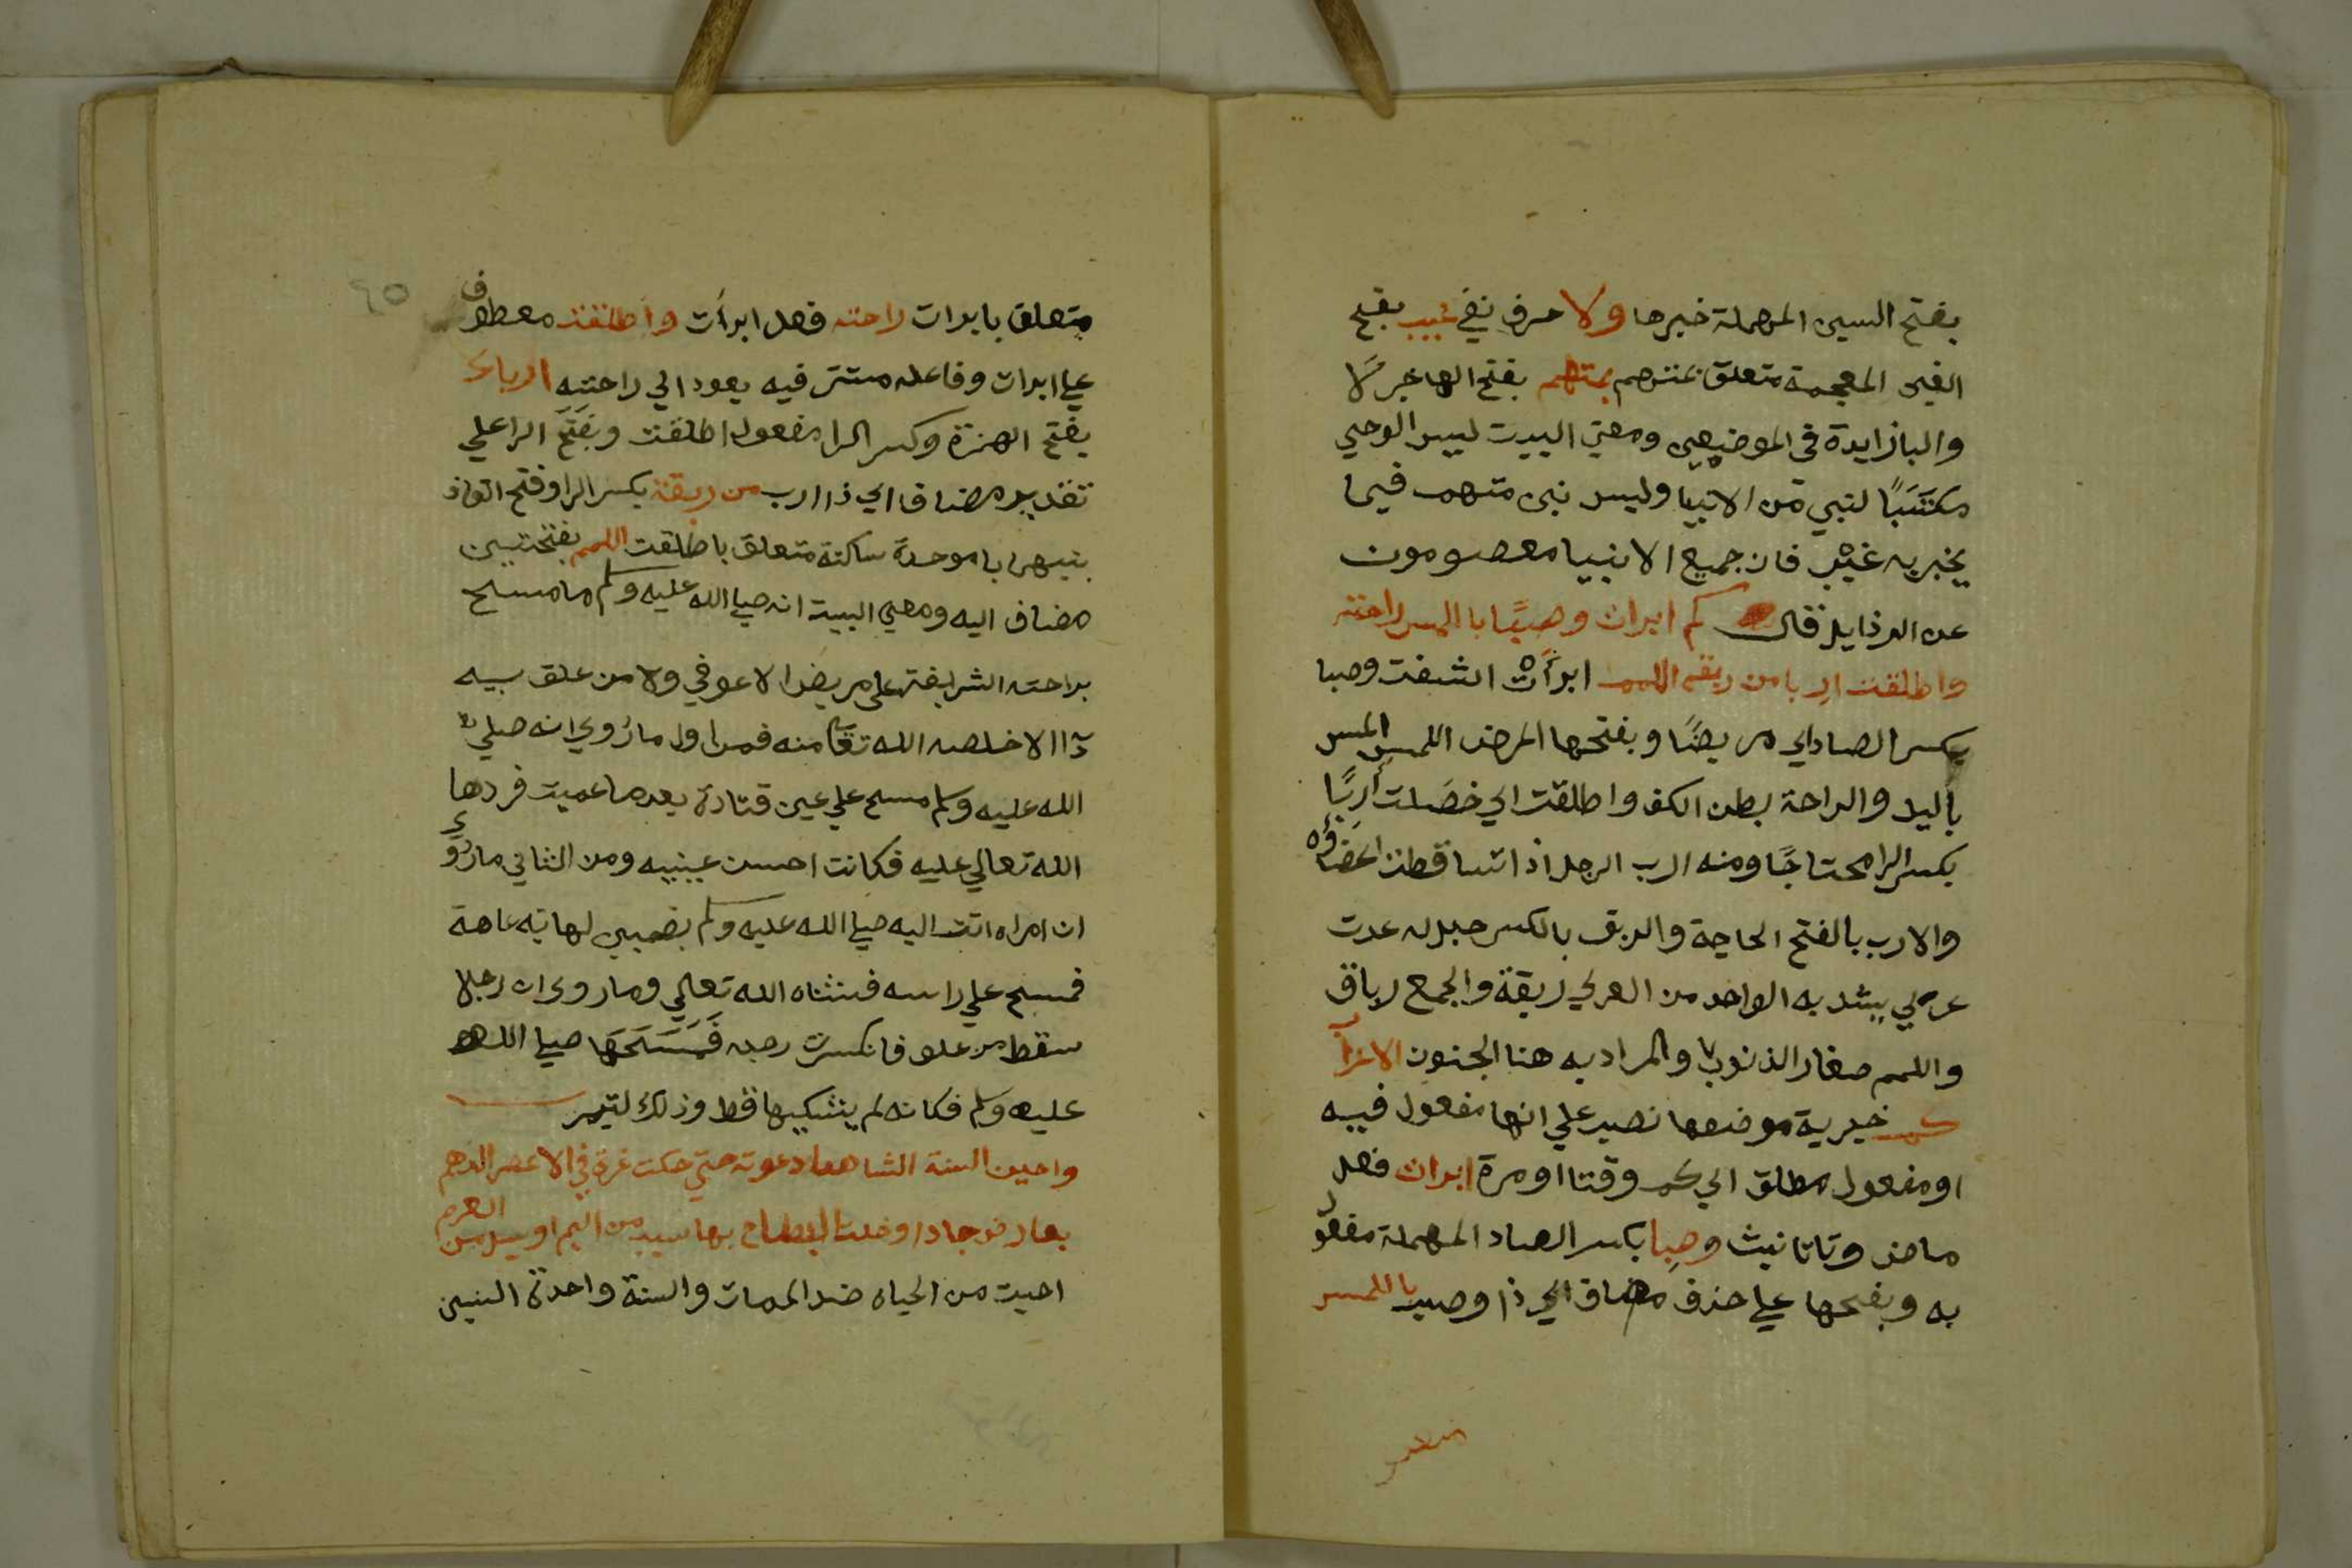 بفتح السين المهملة خبرها ولا حرف نفي غيب بفتح
الغين المعجمة متعلق بمتهم بمتهم بفتح الها خبر لا
والبا زايدة في الموضعين ومعني البيت ليس الوحي
مكتسبًا لنبي من الانبيا وليس نبي متهم فيما
يخبر به غيره فان جميع الانبيا معصومون
عن الرذايل قال كم ابرات وصبًا باللمس راحته
واطلقت اربا من ربقة اللمم ابرأت اشفت وصبا
بكسر الصاد اي مريضًا وبفتحها المرض اللمس المس
باليد والراحة بطن الكف واطلقت اي خصلت أربًا
بكسر الرا محتاجًا ومنه ارب الرجل اذا تساقطت اعضاؤه
والارب بالفتح الحاجة والربق بالكسر حبل له عدت
عري يشد به الواحد من العري ربقة والجمع رباق
واللمم صغار الذنوب والمراد به هنا الجنون الاعراب
كم خبرية موضعها نصب علي انها مفعول فيه
او مفعول مطلق اي كم وقتا او مرة ابرات فعل
ماض وتا تانيث وصبا بكسر الصاد المهملة مفعول
به وبفتحها علي حذف مضاف اي ذا وصب باللمس
متعلق
٩٥
متعلق بابرات راحته فعل ابرأت واطلقت معطوف
علي ابرات وفاعله مستتر فيه يعود الي راحته اربا
بفتح الهمزة وكسر الرا مفعول اطلقت وبفتح الرا علي
تقدير مضاف اي ذا ارب من ربقة بكسر الرا وفتح القاف
بينهما با موحدة ساكنة متعلق باطلقت اللمم بفتحتين
مضاف اليه ومعني البيت انه صلي الله عليه وسلم ما مسح
براحته الشريفة علي مريض الا عوفي ولا من علق به
دآ الا خلصه الله تعا منه فمن اول ما رُوي انه صلي
الله عليه وسلم مسح علي عين قتادة بعدما عميت فردها
الله تعالي عليه فكانت احسن عينيه ومن الثاني ما رُوي
ان امراه اتت اليه صلي الله عليه وسلم بصبي لها به عاهة
فمسح علي راسه فشفاه الله تعالي وما روي ان رجلا
سقط من علو فانكسرت رجله فَمَسَحَهَا صلي الله
عليه وسلم فكانه لم يشتكيها قط وذلك كثير
واحيت السنة الشهباء دعوته حتي حكت غرة في الاعصر الدهم
بعارض جاد او خلت البطاح بها سيب من اليم او سيل من العرم
احيت من الحياه ضد الممات والسنة واحدة السنين